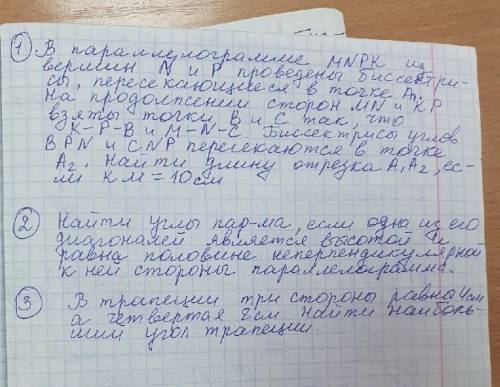 1 В параллелограмме MNPK из
вершин N и P проведены биссектри-
сы, пересекающиеся в точке A₁.
На продолжении сторон MN и KP
взяты точки B и C так, что
K-P-B и M-N-C. Биссектрисы углов
BPN и CNP пересекаются в точке
A₂. Найти длину отрезка A₁A₂, ес-
ли KM = 10 см
2 Найти углы пар-ма, если одна из его
диагоналей является высотой и
равна половине неперпендикулярной
к ней стороны параллелограмма.
3 В трапеции три стороны равны 4 см
а четвертая 8 см. Найти наиболь-
ший угол трапеции.